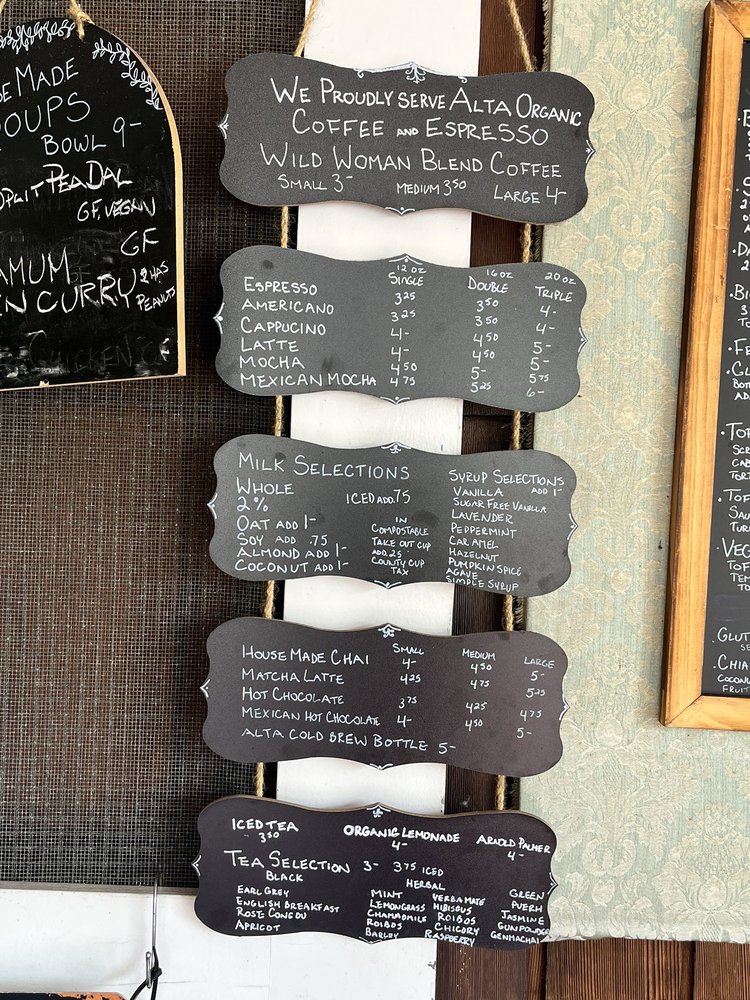 MADE
SOUPS
BOWL 9-
SPLIT PEA DAL
GF, VEGAN
GF
CURRY 2 HAS
PEANUTS
WE PROUDLY SERVE ALTA ORGANIC
COFFEE AND ESPRESSO
WILD WOMAN BLEND COFFEE
SMALL 3- MEDIUM 3.50 LARGE 4-
12 OZ 16 OZ 20 OZ
SINGLE DOUBLE TRIPLE
ESPRESSO 3.25 3.50 4-
AMERICANO 3.25 3.50 4-
CAPPUCINO 4- 4.50 5-
LATTE 4- 4.50 5-
MOCHA 4.50 5- 5.75
MEXICAN MOCHA 4.75 5.25 6-
MILK SELECTIONS
WHOLE
2%
OAT ADD 1-
SOY ADD .75
ALMOND ADD 1-
COCONUT ADD 1-
ICED ADD .75
IN
COMPOSTABLE
TAKE OUT CUP
ADD .25
COUNTY CUP
TAX
SYRUP SELECTIONS
VANILLA ADD 1-
SUGAR FREE VANILLA
LAVENDER
PEPPERMINT
CARAMEL
HAZELNUT
PUMPKIN SPICE
AGAVE
SIMPLE SYRUP
SMALL MEDIUM LARGE
HOUSE MADE CHAI 4- 4.50 5-
MATCHA LATTE 4.25 4.75 5.25
HOT CHOCOLATE 3.75 4.25 4.75
MEXICAN HOT CHOCOLATE 4- 4.50 5-
ALTA COLD BREW BOTTLE 5-
ICED TEA ORGANIC LEMONADE ARNOLD PALMER
3.50 4- 4-
TEA SELECTION 3- 3.75 ICED
BLACK
EARL GREY
ENGLISH BREAKFAST
ROSE CONGOU
APRICOT
HERBAL
MINT YERBA MATE
LEMONGRASS HIBISCUS
CHAMOMILE ROIBOS
ROIBOS CHICORY
BARLEY RASPBERRY
GREEN
PUERH
JASMINE
GUNPOWDER
GENMACHAI